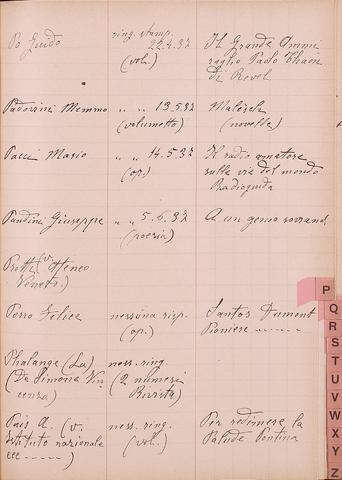 Po Guido ring. stamp. Il Grande Ammi
22.4.32 raglio Paolo Thaon
(vol.) di Revel
Padovini Memmo " " 13.5.32 Malèsch
(volumetto) (novelle)
Pacci Mario " " 14.5.32 Il radio amatore
(op.) sulle vie del mondo
Radioguida
Pandini Giuseppe " " 5.6.32 A un genio sovrano!
(poesia)
(v. Ateneo
Veneto.)
Porro Felice nessuna risp. Santos Dumont
(op.) Pioniere
Phalange (La) ness. ring.
(De Simone Vin (2 numeri
cenza) Rivista)
Pais A. (v. ness. ring. Per redimere la
Istituto nazionale (vol.) Palude Pontina
ecc )
P
Q
R
S
T
U
V
W
X
Y
Z